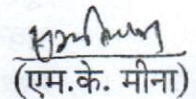 (एम.के. मीना)